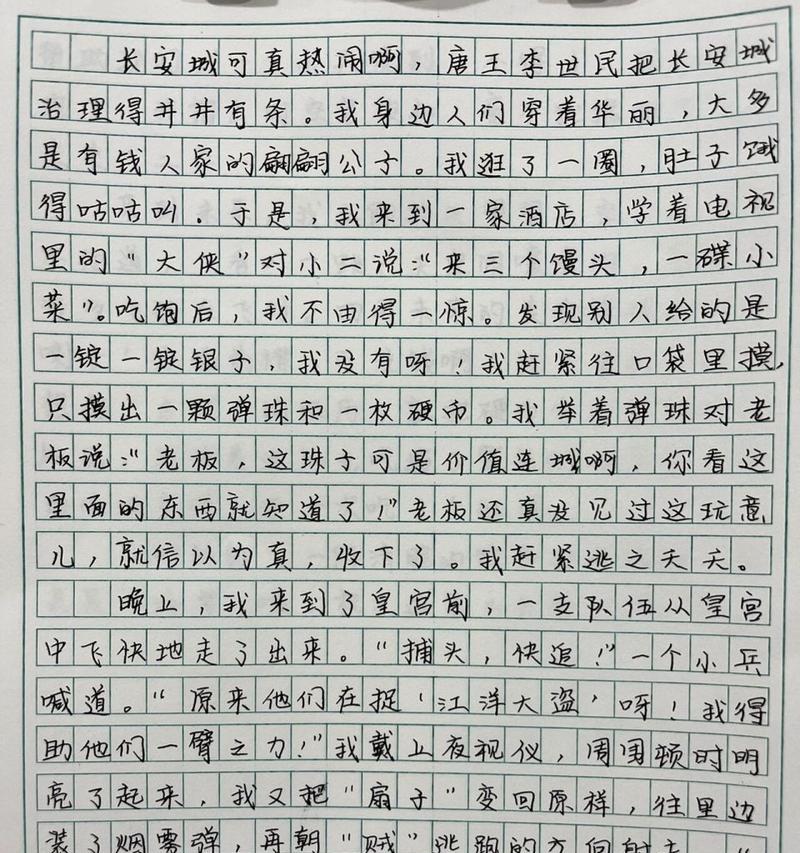 长安城可真热闹啊，唐王李世民把长安城
治理得井井有条。我身边人们穿着华丽，大多
是有钱人家的翩翩公子。我逛了一圈，肚子饿
得咕咕叫。于是，我来到一家酒店，学着电视
里的“大侠”对小二说：“来三个馒头，一碟小
菜”。吃饱后，我不由得一惊。发现别人给的是
一锭一锭银子，我没有呀！我赶紧往口袋里摸，
只摸出一颗弹珠和一枚硬币。我举着弹珠对老
板说：“老板，这珠子可是价值连城啊，你看这
里面的东西就知道了！”老板还真没见过这玩意
儿，就信以为真，收下了。我赶紧逃之夭夭。
晚上，我来到了皇宫前，一支队伍从皇宫
中飞快地走了出来。“捕头，快追！”一个小兵
喊道。“原来他们在捉‘江洋大盗’呀！我得
助他们一臂之力！”我戴上夜视仪，周围顿时明
亮了起来，我又把“扇子”变回原样，往里边
装了烟雾弹，再朝“贼”逃跑的方向射去。“